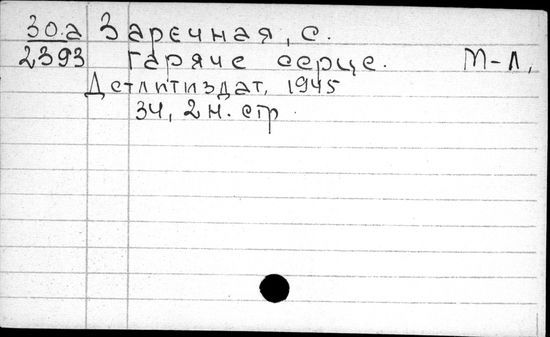 30.а Заречная, С.
2393 Гаряче серце. М-Л,
Детлитиздат, 1945
34, 2 н. стр